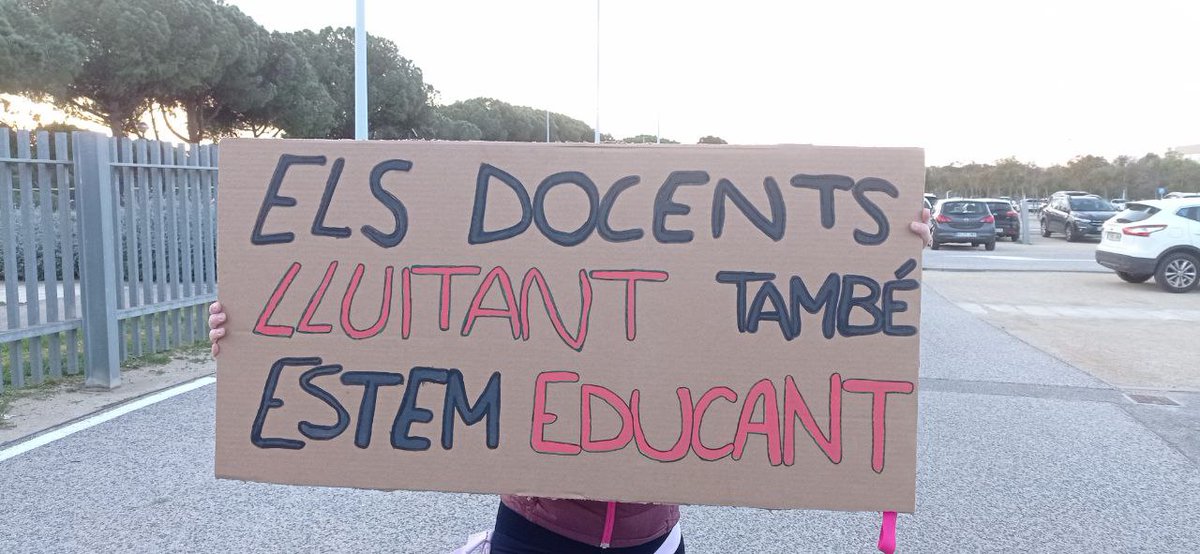 ELS DOCENTS
LLUITANT TAMBÉ
ESTEM EDUCANT